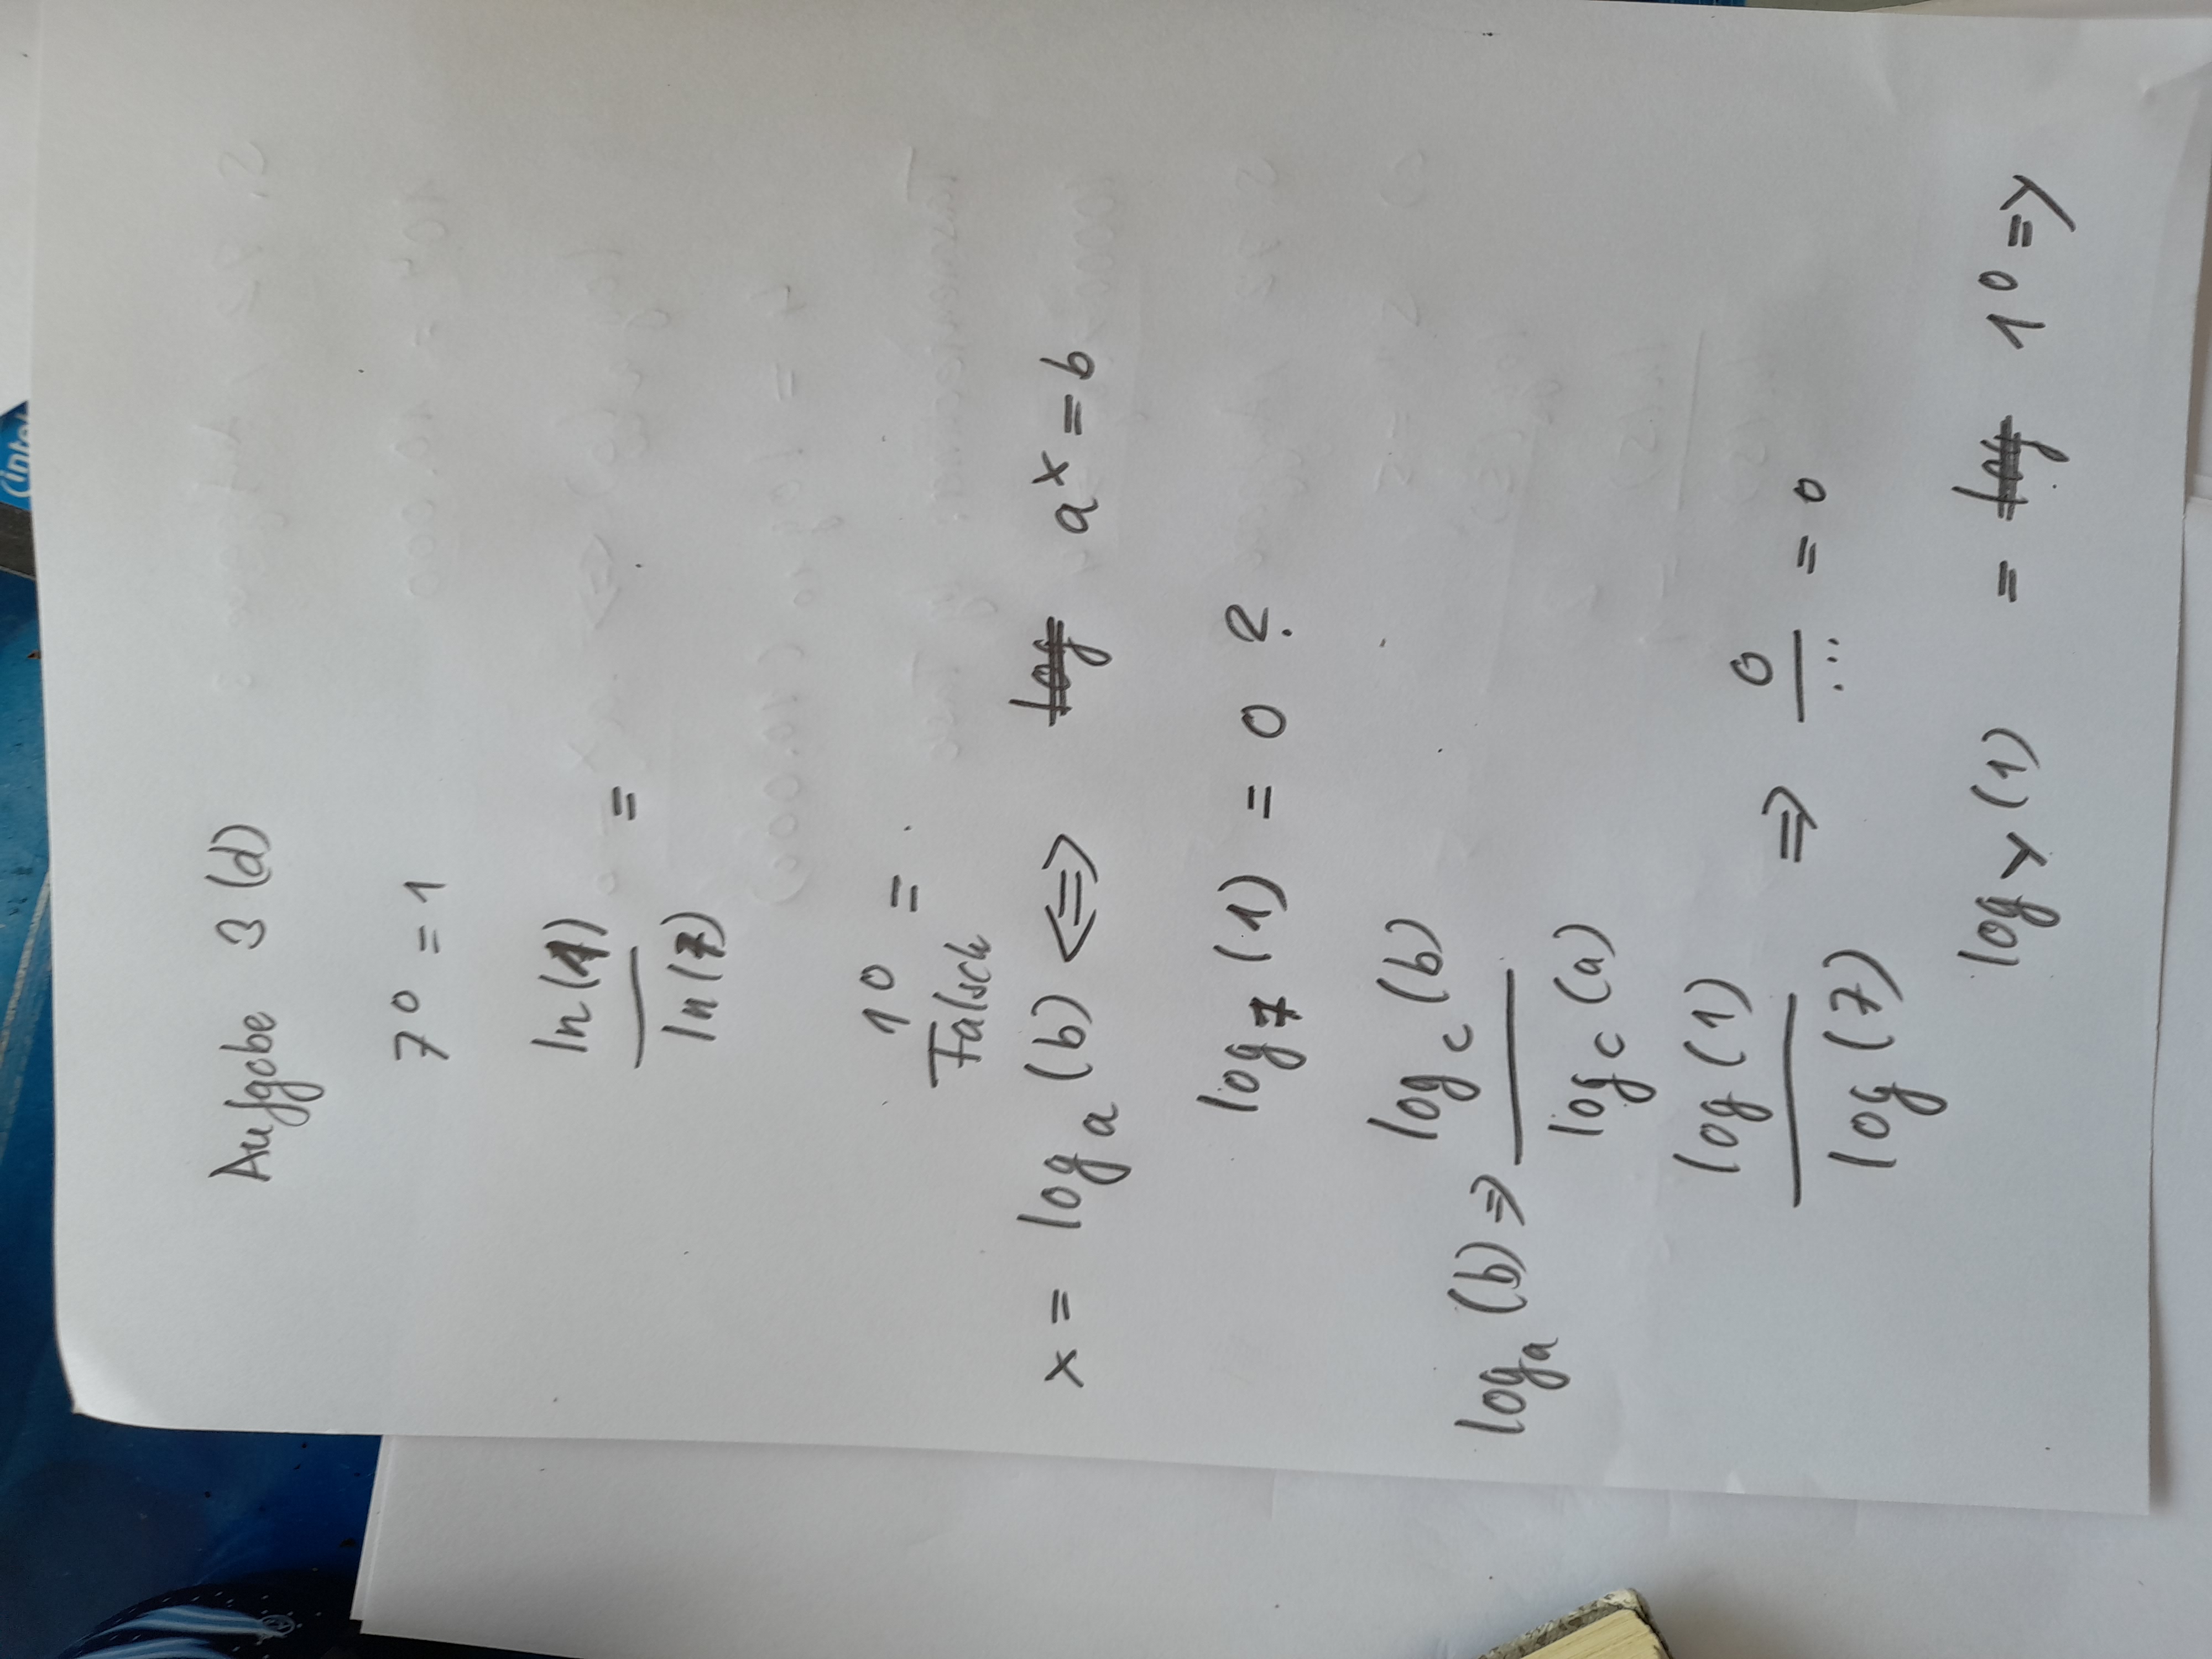 Aufgabe 3 (d)
7⁰ = 1
ln(1)
/ ln(7) =
1⁰ =
Falsch
x = log a (b) ⇔ log aˣ = b
log 7 (1) = 0 ?
log a (b) ⇒ log c (b)
/ log c (a)
log (1)
/ log (7) ⇒ 0 / ... = 0
log y (1) = log 1⁰ = y
(intel